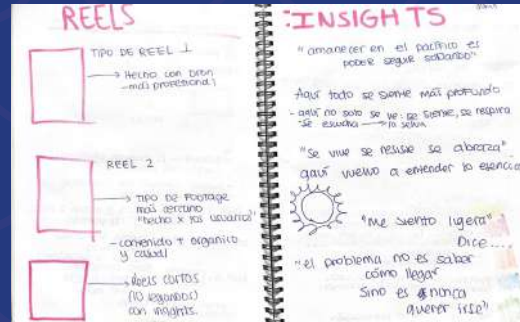 REELS
TIPO DE REEL 1
Hecho con dron
-más profesional
REEL 2
TIPO DE FOOTAGE
más cercano
"hecho x los usuarios"
-contenido + organico
y casual
Reels cortos
(10 segundos)
con insights.
:INSIGHTS
"amanecer en el pacífico es
poder seguir soñando"
Aquí todo se siente más profundo
-aquí no solo se ve: se siente, se respira
se escucha la selva
"se vive se resiste se abraza"
aquí vuelvo a entender lo esencial
"Me siento ligera"
Dice....
"el problema no es saber
cómo llegar
sino es nunca
querer irse"